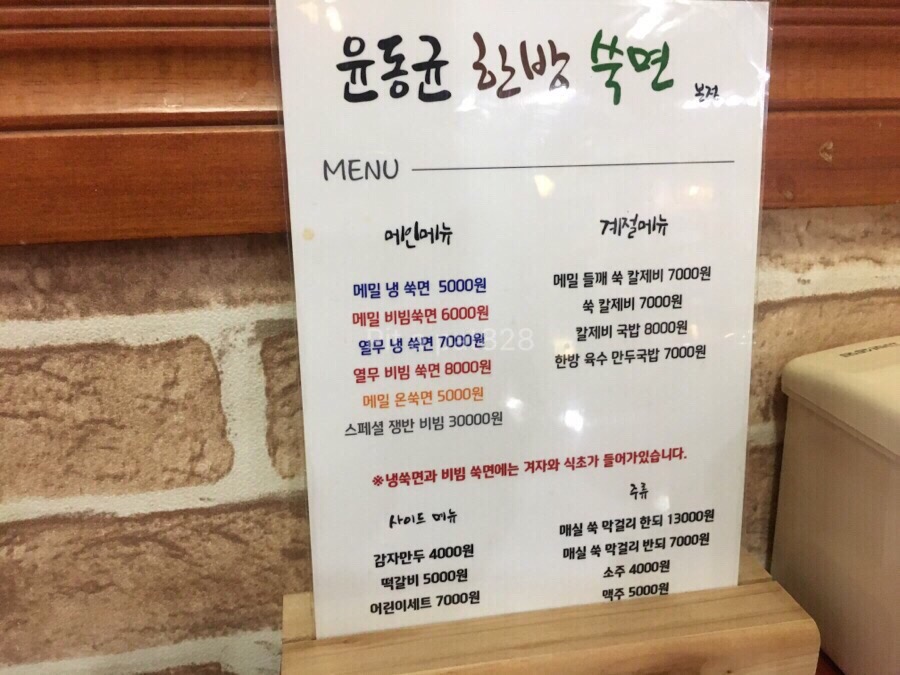 윤동균 한방 쑥면 본점
MENU
메인메뉴
메밀 냉 쑥면 5000원
메밀 비빔쑥면 6000원
열무 냉 쑥면 7000원
열무 비빔 쑥면 8000원
메밀 온쑥면 5000원
스페셜 쟁반 비빔 30000원
계절메뉴
메밀 들깨 쑥 칼제비 7000원
쑥 칼제비 7000원
칼제비 국밥 8000원
한방 육수 만두국밥 7000원
※냉쑥면과 비빔 쑥면에는 겨자와 식초가 들어가있습니다.
사이드 메뉴
감자만두 4000원
떡갈비 5000원
어린이세트 7000원
주류
매실 쑥 막걸리 한되 13000원
매실 쑥 막걸리 반되 7000원
소주 4000원
맥주 5000원